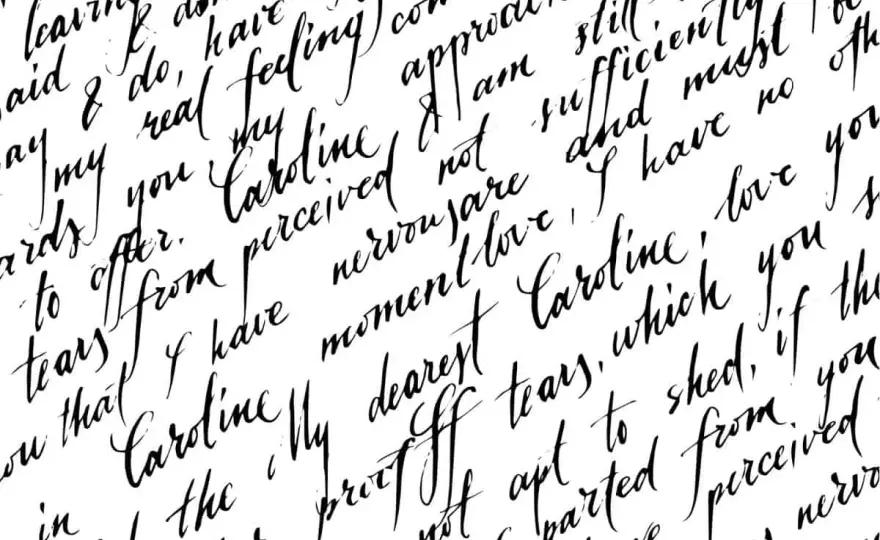 leaving
said & don
ay & do, have
my real feeling con
ards you, my approach
to offer. Caroline & am still
tears from perceived not sufficiently
ou that I have nervous are and must
in Caroline moment love, I have no oth
the My dearest Caroline, love you
proof tears, which you s
not apt to shed, if the
parted from you
perceived
nervo